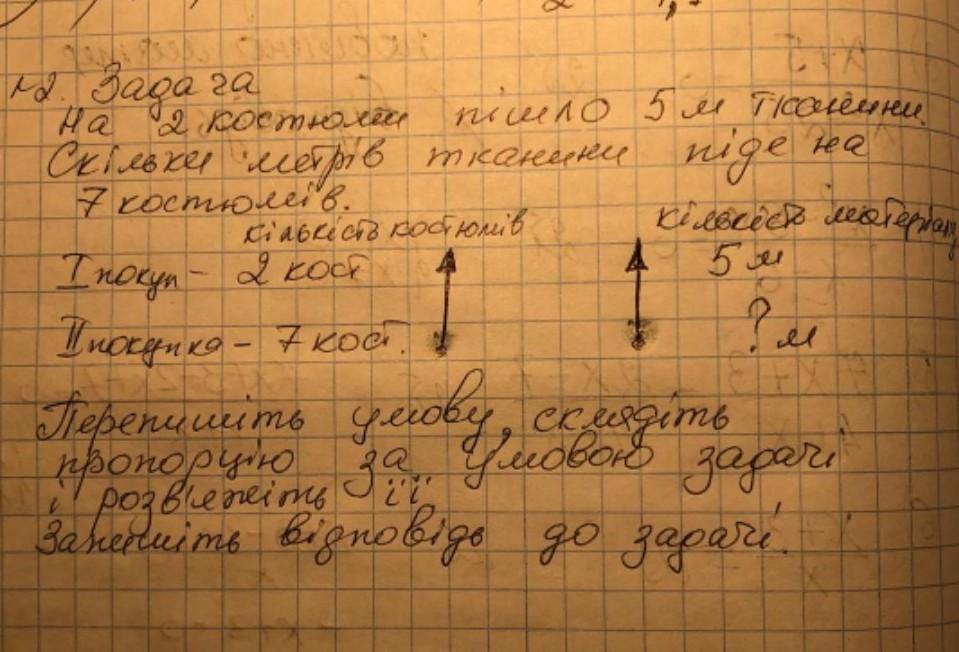 №2. Задача
На 2 костюми пішло 5 м тканини.
Скільки метрів тканини піде на
7 костюмів.
кількість костюмів кількість матеріалу
I покуп - 2 кост 5 м
II покупка - 7 кост. ? м
Перепишіть умову, складіть
пропорцію за умовою задачі
і розв'яжіть її
Запишіть відповідь до задачі.